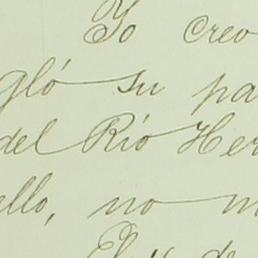 Yo creo
gló su pa
del Río Her
ello, no m